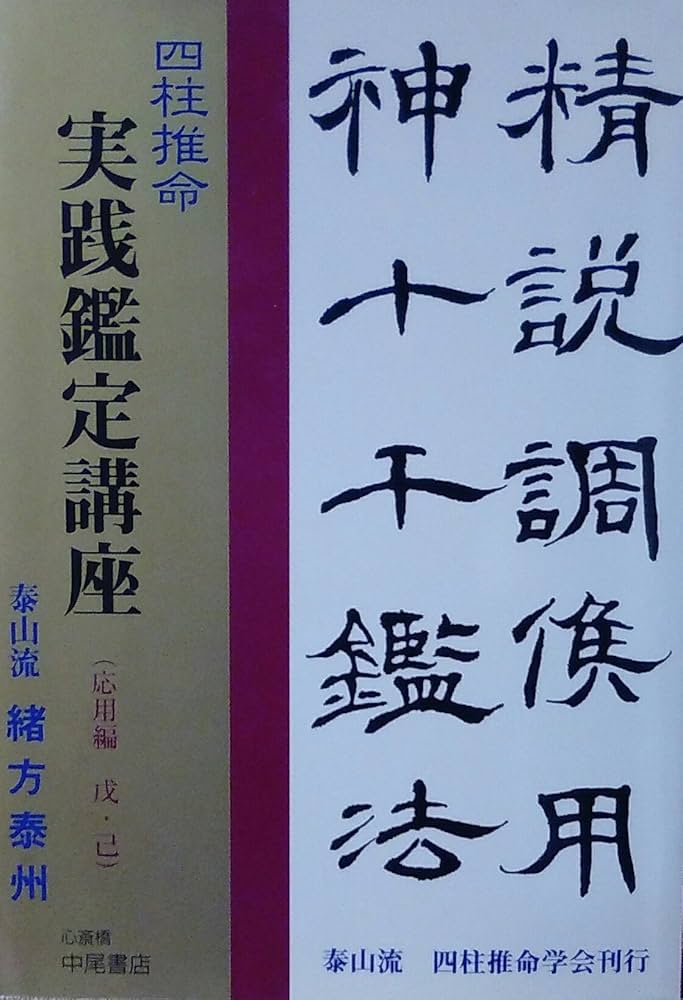 精説調候用
神十干鑑法
泰山流　四柱推命学会刊行
四柱推命
実践鑑定講座
（応用編　戊・己）
泰山流　緒方泰州
心斎橋
中尾書店